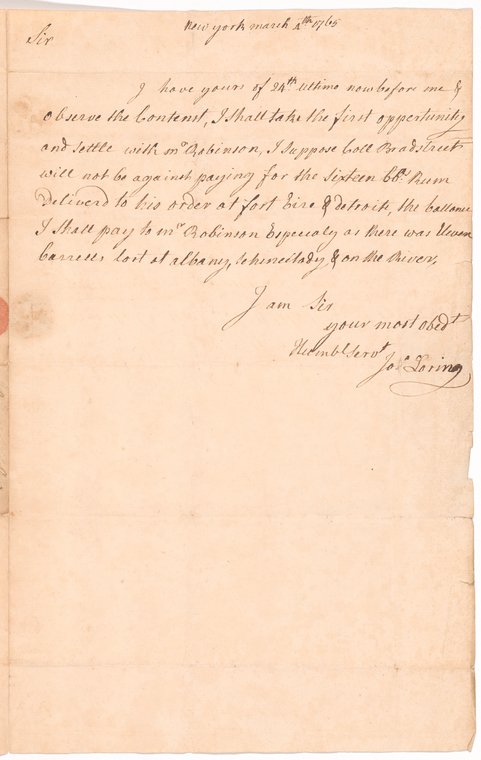 New york march 4th 1765
Sir
I have yours of 24th ultimo now before me &
observe the Contenst, I shall take the first opportunity
and settle with mr Robinson, I suppose Coll Bradstreet
will not be against paying for the sixteen bb: Rum
Deliverd to his order at fort Eire & Detroit, the ballance
I shall pay to mr Robinson Especialy as there was Eleven
barrells lost at albany, Schinestady & on the River,
I am Sir
your most obedt
Humble Servt
Jos Loring